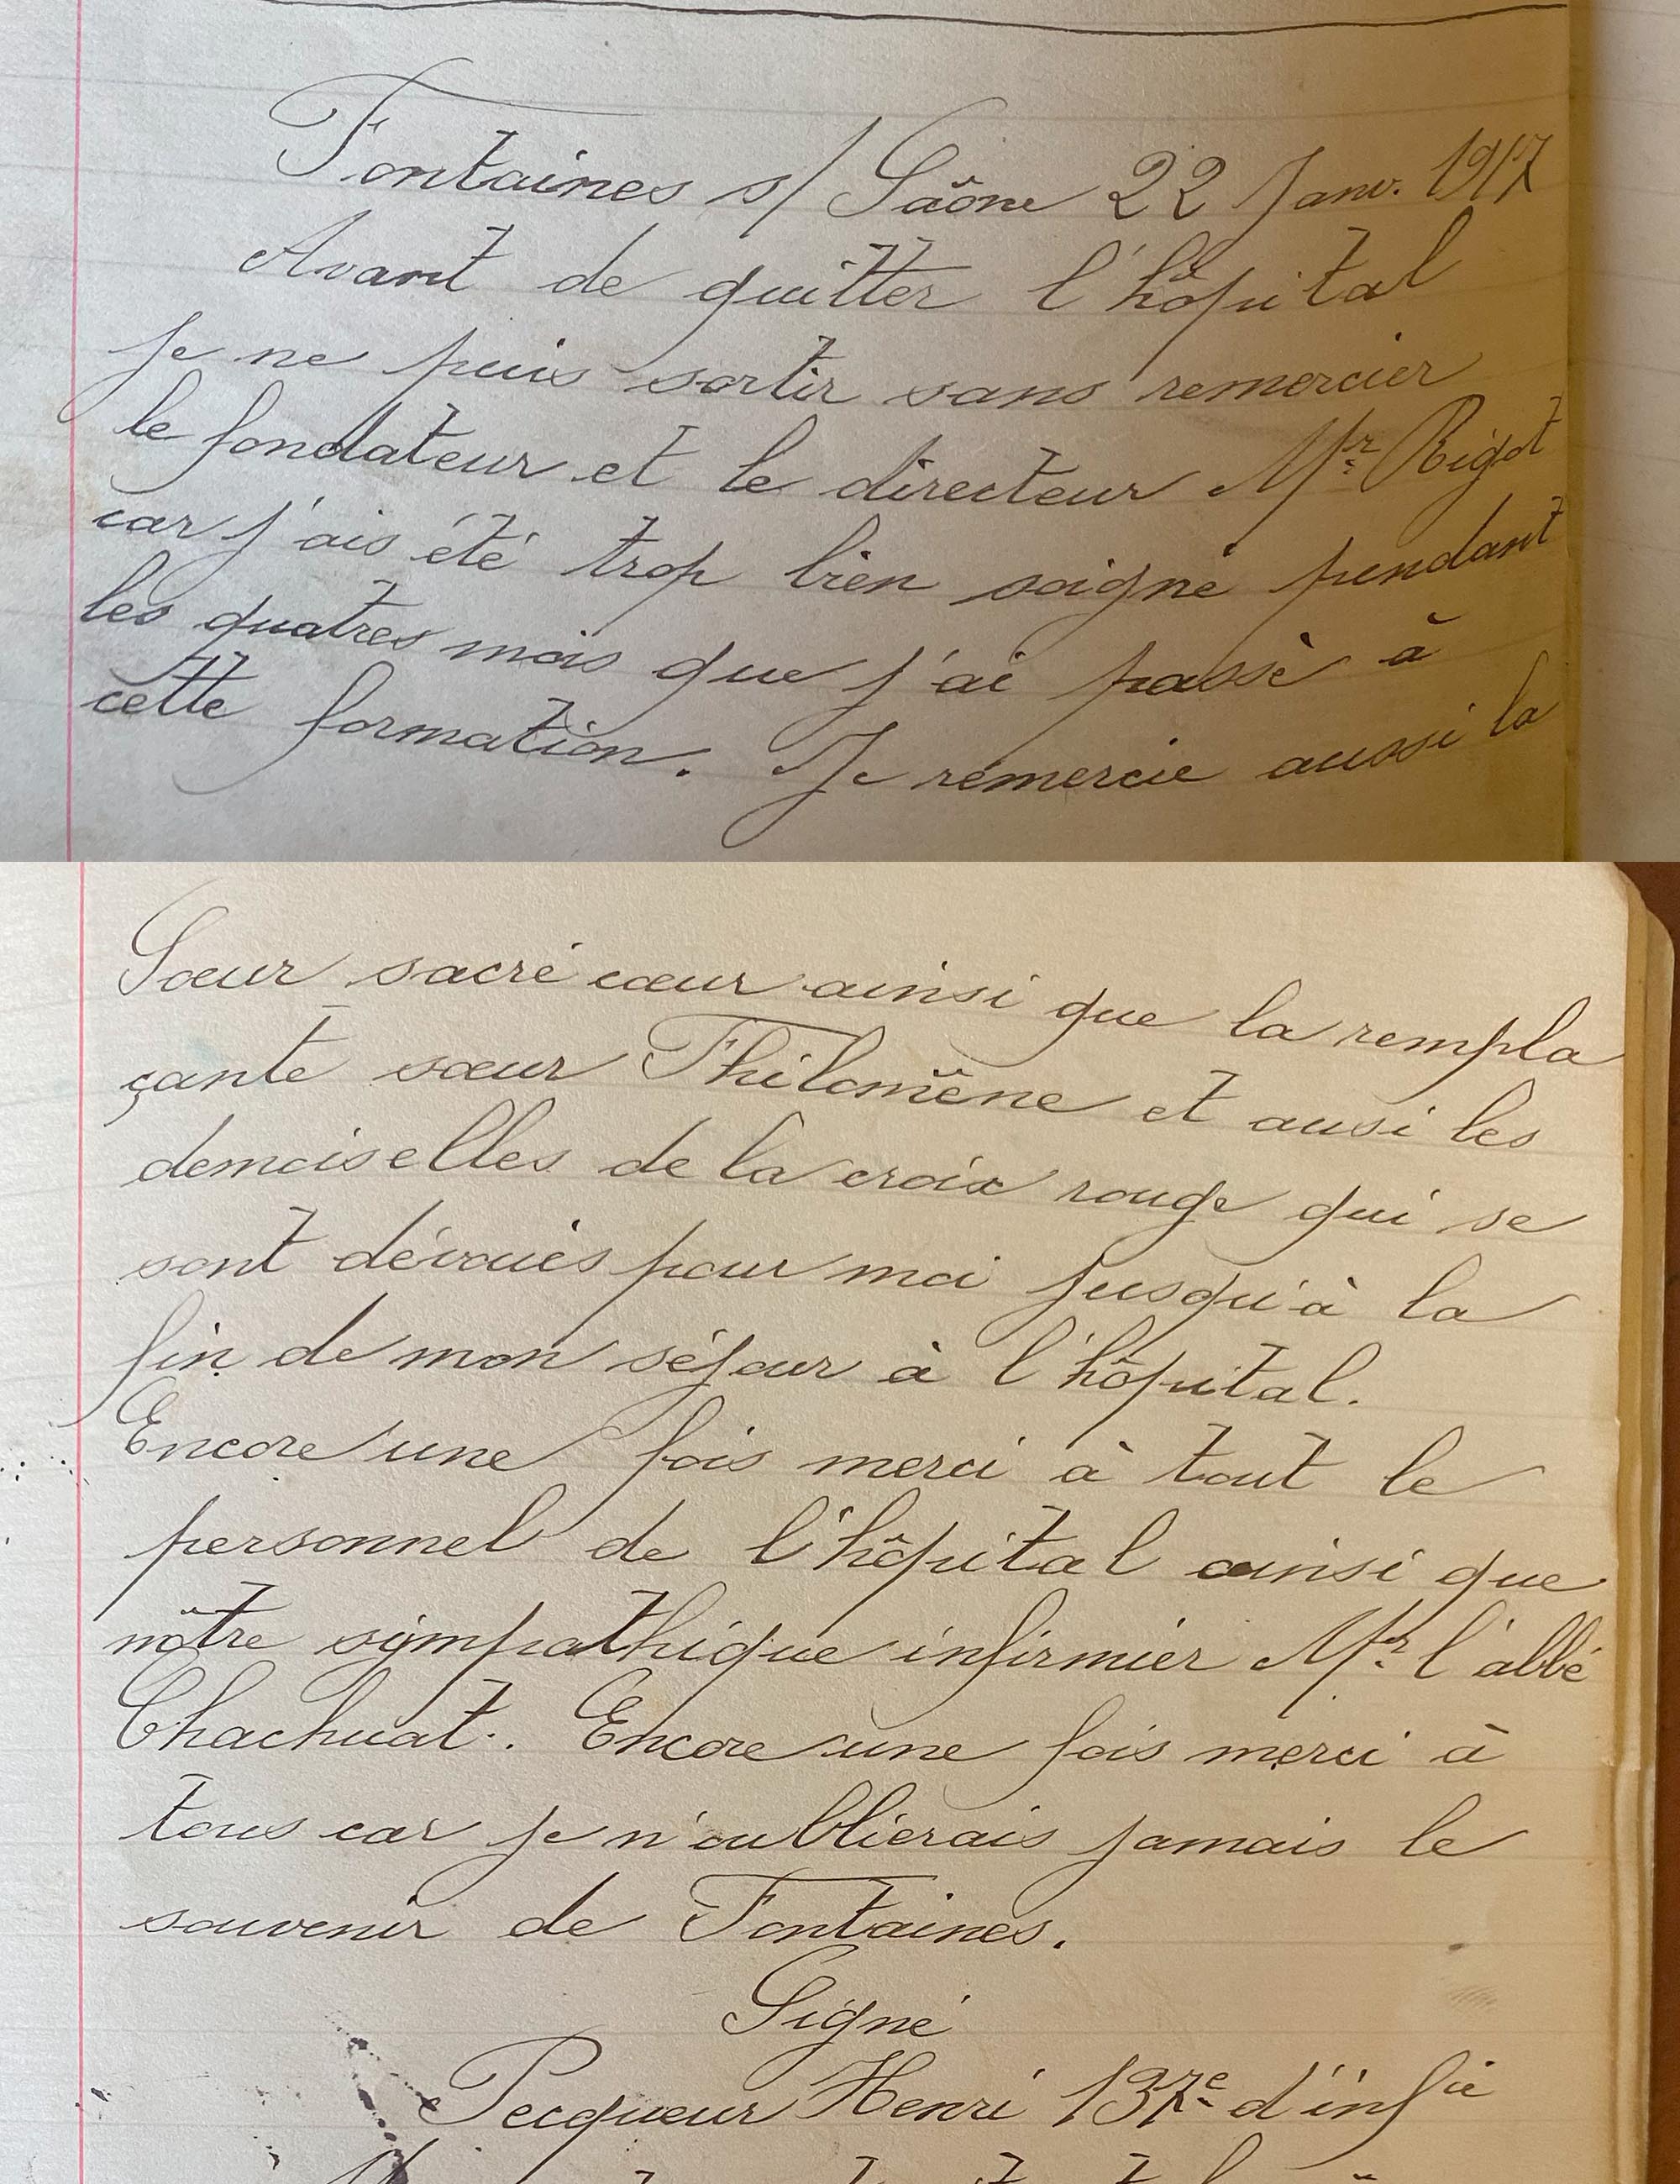 Fontaines s/ Saône 22 Janv. 1917
Avant de quitter l'hôpital
je ne puis sortir sans remercier
le fondateur et le directeur Mr Rigot
car j'ais été trop bien soigné pendant
les quatres mois que j'ai passè à
cette formation. Je remercie aussi la
Sœur sacré cœur ainsi que la rempla
çante sœur Philomène et ausi les
demoiselles de la croix rouge qui se
sont dévoués pour moi jusqu'à la
fin de mon séjour à l'hôpital.
Encore une fois merci à tout le
personnel de l'hôpital ainsi que
nôtre sympathique infirmier Mr l'abbé
Chachuat. Encore une fois merci à
tous car je n'oublierais jamais le
souvenir de Fontaines.
Signé
Pecqueur Henri 137e d'infie